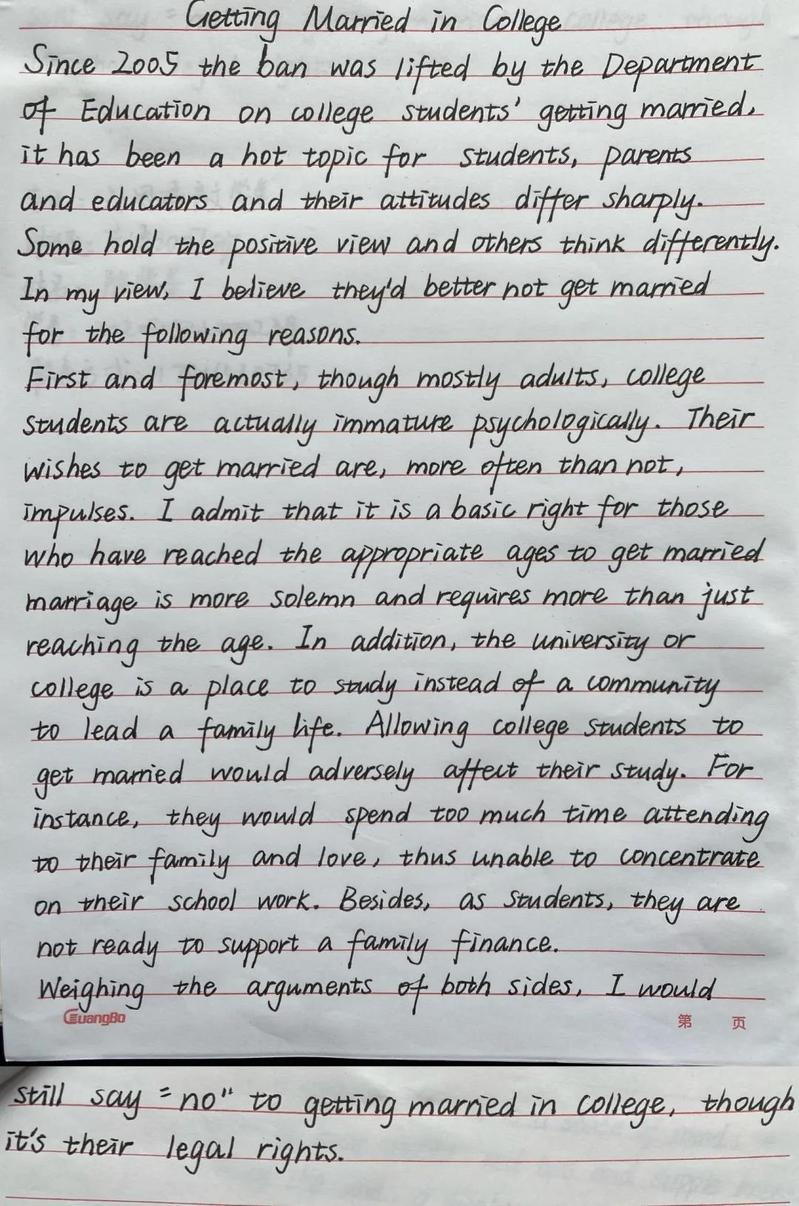 Getting Married in College
Since 2005 the ban was lifted by the Department
of Education on college students' getting married,
it has been a hot topic for students, parents
and educators and their attitudes differ sharply.
Some hold the positive view and others think differently.
In my view, I believe they'd better not get married
for the following reasons.
First and foremost, though mostly adults, college
students are actually immature psychologically. Their
wishes to get married are, more often than not,
impulses. I admit that it is a basic right for those
who have reached the appropriate ages to get married
marriage is more solemn and requires more than just
reaching the age. In addition, the university or
college is a place to study instead of a community
to lead a family life. Allowing college students to
get married would adversely affect their study. For
instance, they would spend too much time attending
to their family and love, thus unable to concentrate
on their school work. Besides, as students, they are
not ready to support a family finance.
Weighing the arguments of both sides, I would
GuangBo 第 页
still say "no" to getting married in college, though
it's their legal rights.